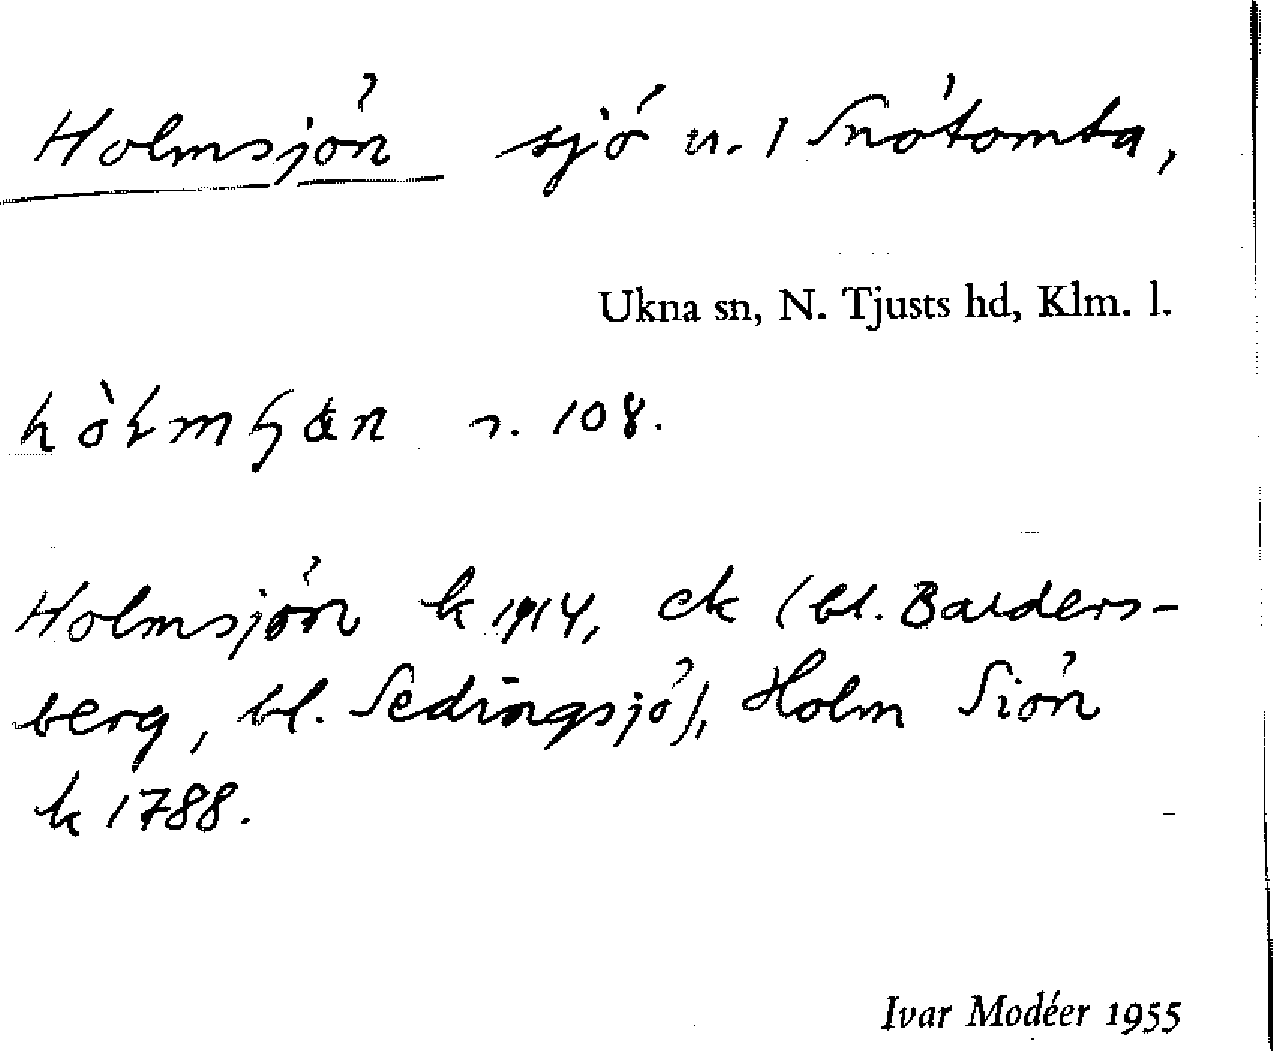 Holmsjön sjö u. / Snötomta,
Ukna sn, N. Tjusts hd, Klm. l.
108.
Holmsjön k 1914, ck (bl. Balders-
berg, bl. Sedingsjö), Holm Siön
k 1788.
Ivar Modéer 1955